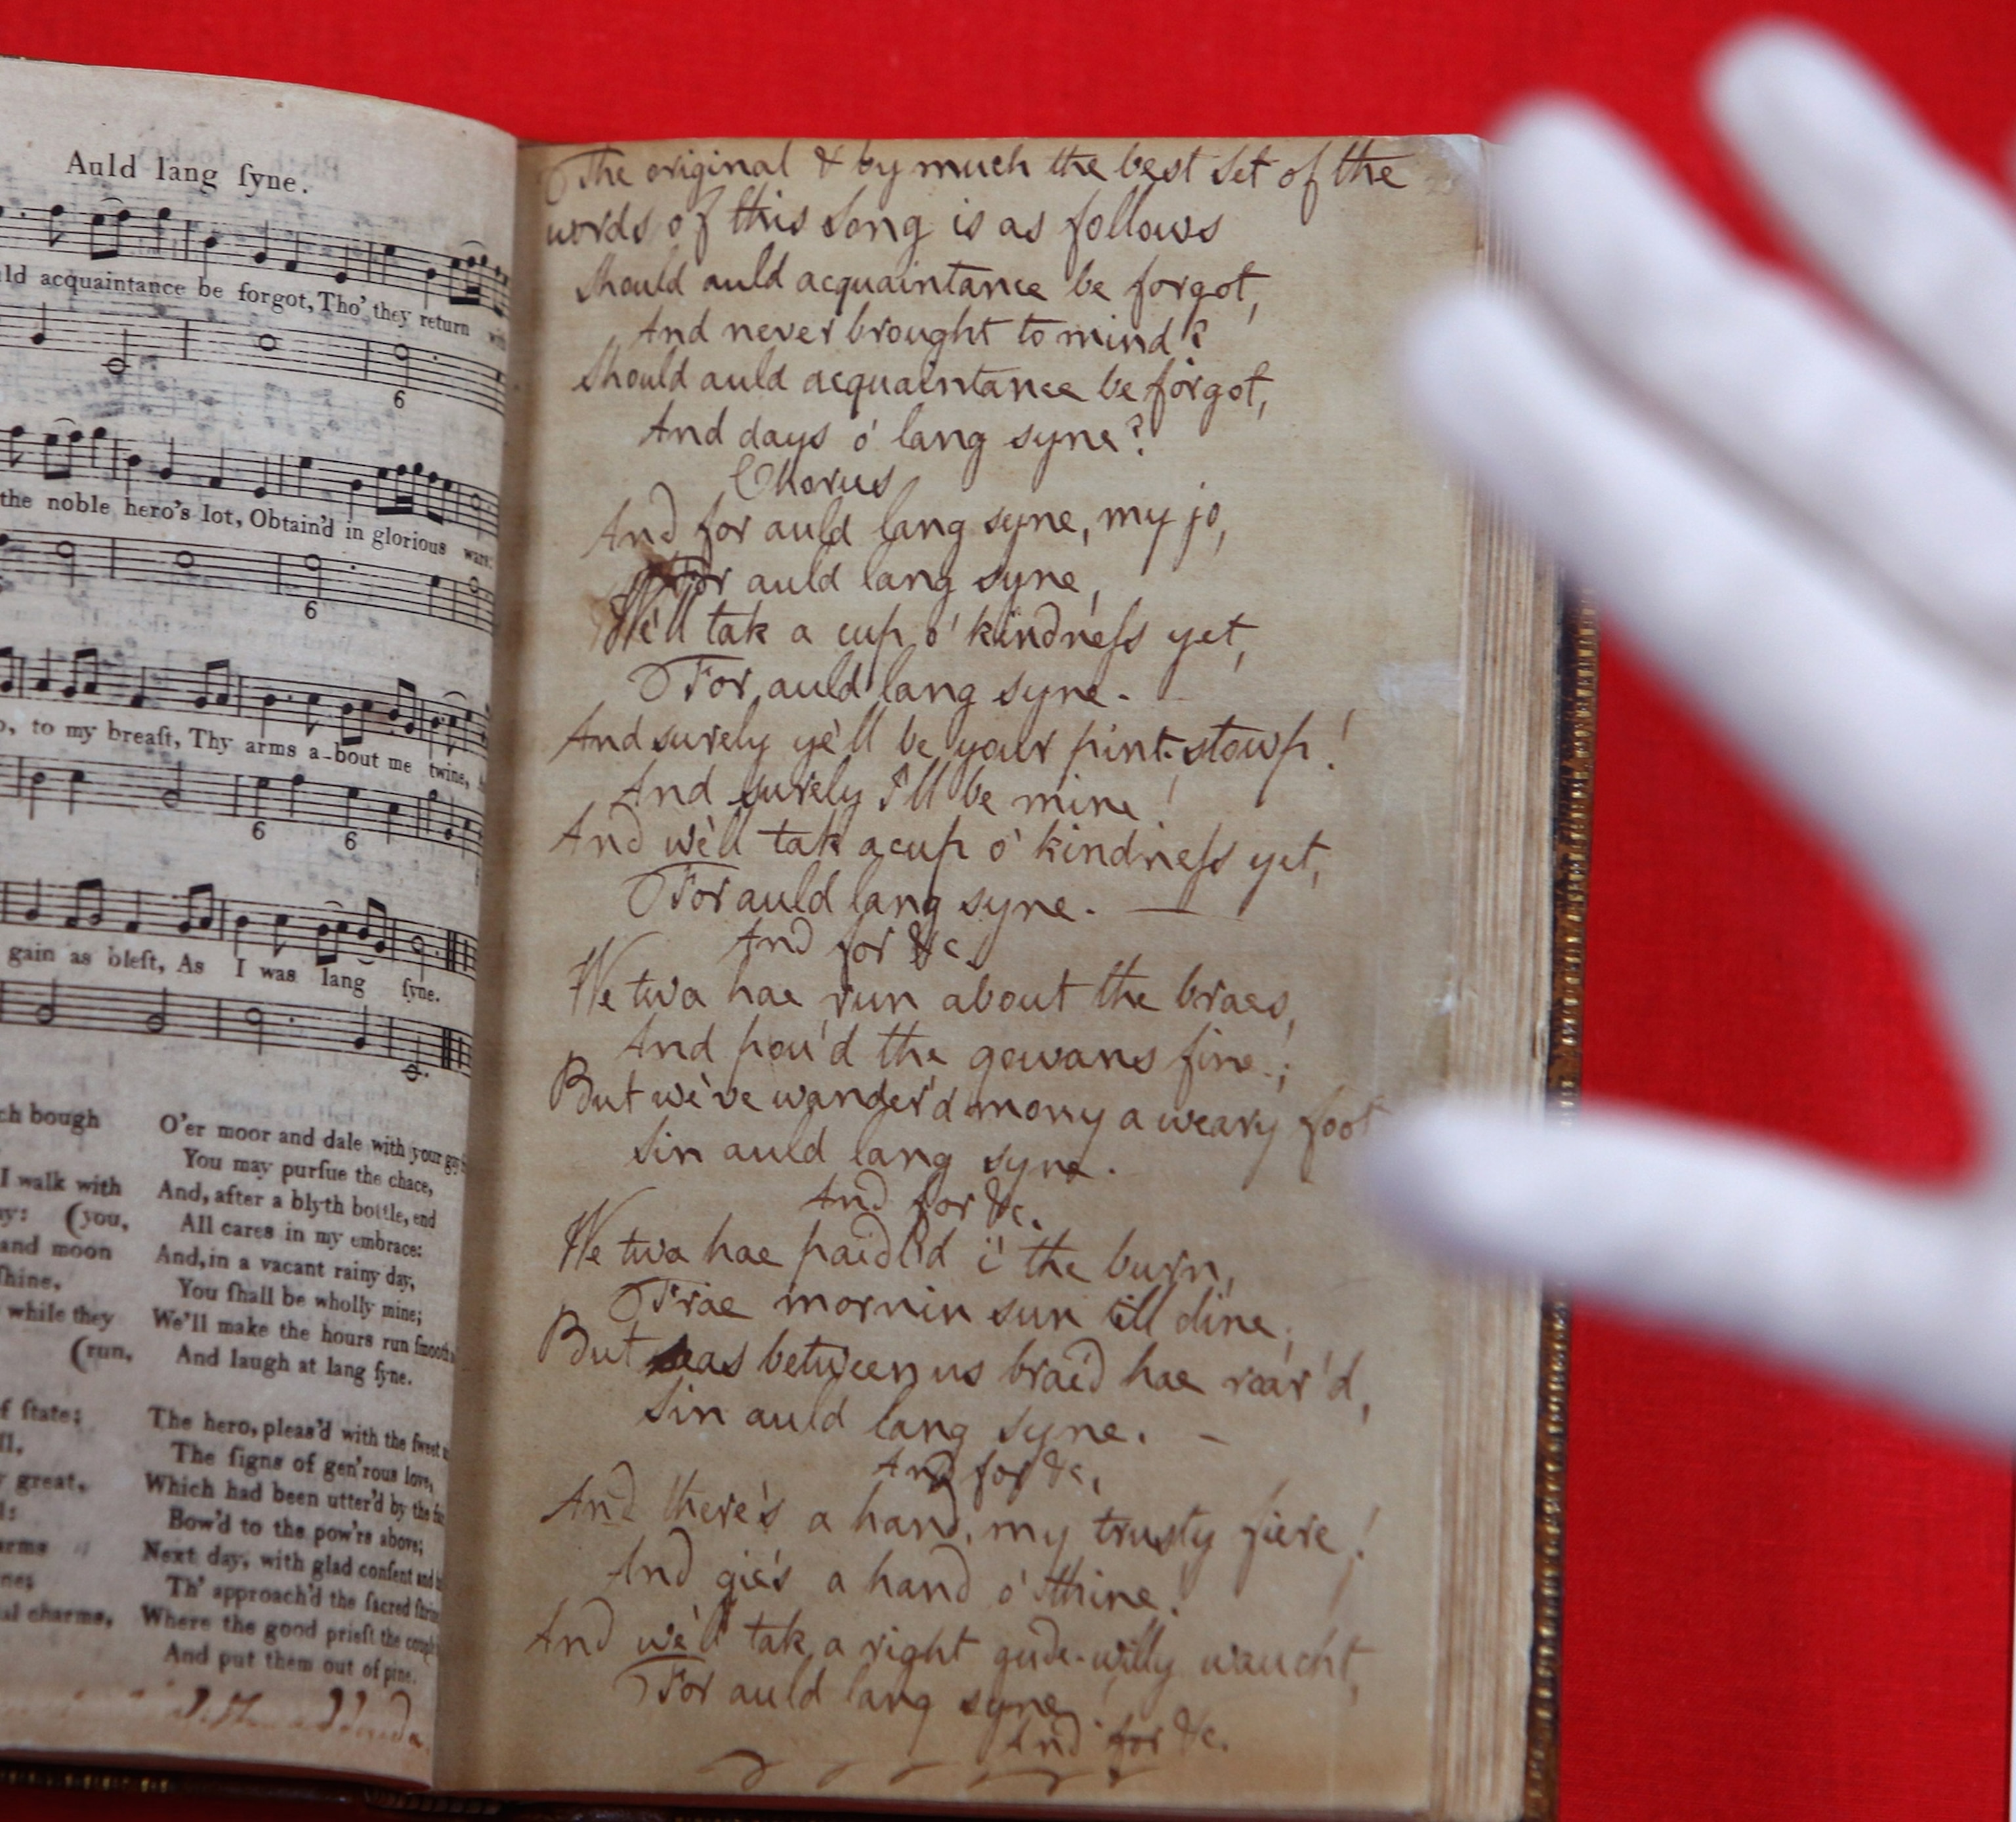 Auld lang ſyne.
acquaintance be forgot, Tho' they return
6
the noble hero's lot, Obtain'd in glorious wars:
6
to my breaſt, Thy arms a-bout me twine,
6 6
gain as bleſt, As I was lang ſyne.
bough
I walk with
(you,
and moon
ſhine,
while they
(run,
of ſtate;
great,
charms,
O'er moor and dale with your gay
You may purſue the chace,
And, after a blyth bottle, end
All cares in my embrace:
And, in a vacant rainy day,
You ſhall be wholly mine;
We'll make the hours run ſmooth
And laugh at lang ſyne.
The hero, pleas'd with the ſweet
The ſigns of gen'rous love,
Which had been utter'd by the
Bow'd to the pow'rs above;
Next day, with glad conſent and
Th' approach'd the ſacred
Where the good prieſt the
And put them out of pine.
The original & by much the best set of the
words of this song is as follows
Should auld acquaintance be forgot,
And never brought to mind?
Should auld acquaintance be forgot,
And days o' lang syne?
Chorus
And for auld lang syne, my jo,
For auld lang syne,
We'll tak a cup o' kindneſs yet,
For auld lang syne.
And surely ye'll be your pint-stowp!
And surely I'll be mine!
And we'll tak a cup o' kindneſs yet,
For auld lang syne. —
And for &c.
We twa hae run about the braes,
And pou'd the gowans fine;
But we've wander'd mony a weary foot
Sin auld lang syne.
And for &c.
We twa hae paidl'd i' the burn,
Frae mornin sun till dine;
But seas between us braid hae roar'd,
Sin auld lang syne. —
And for &c.
And there's a hand, my trusty fiere!
And gie's a hand o' thine!
And we'll tak a right gude-willy waucht,
For auld lang syne!
And for &c.